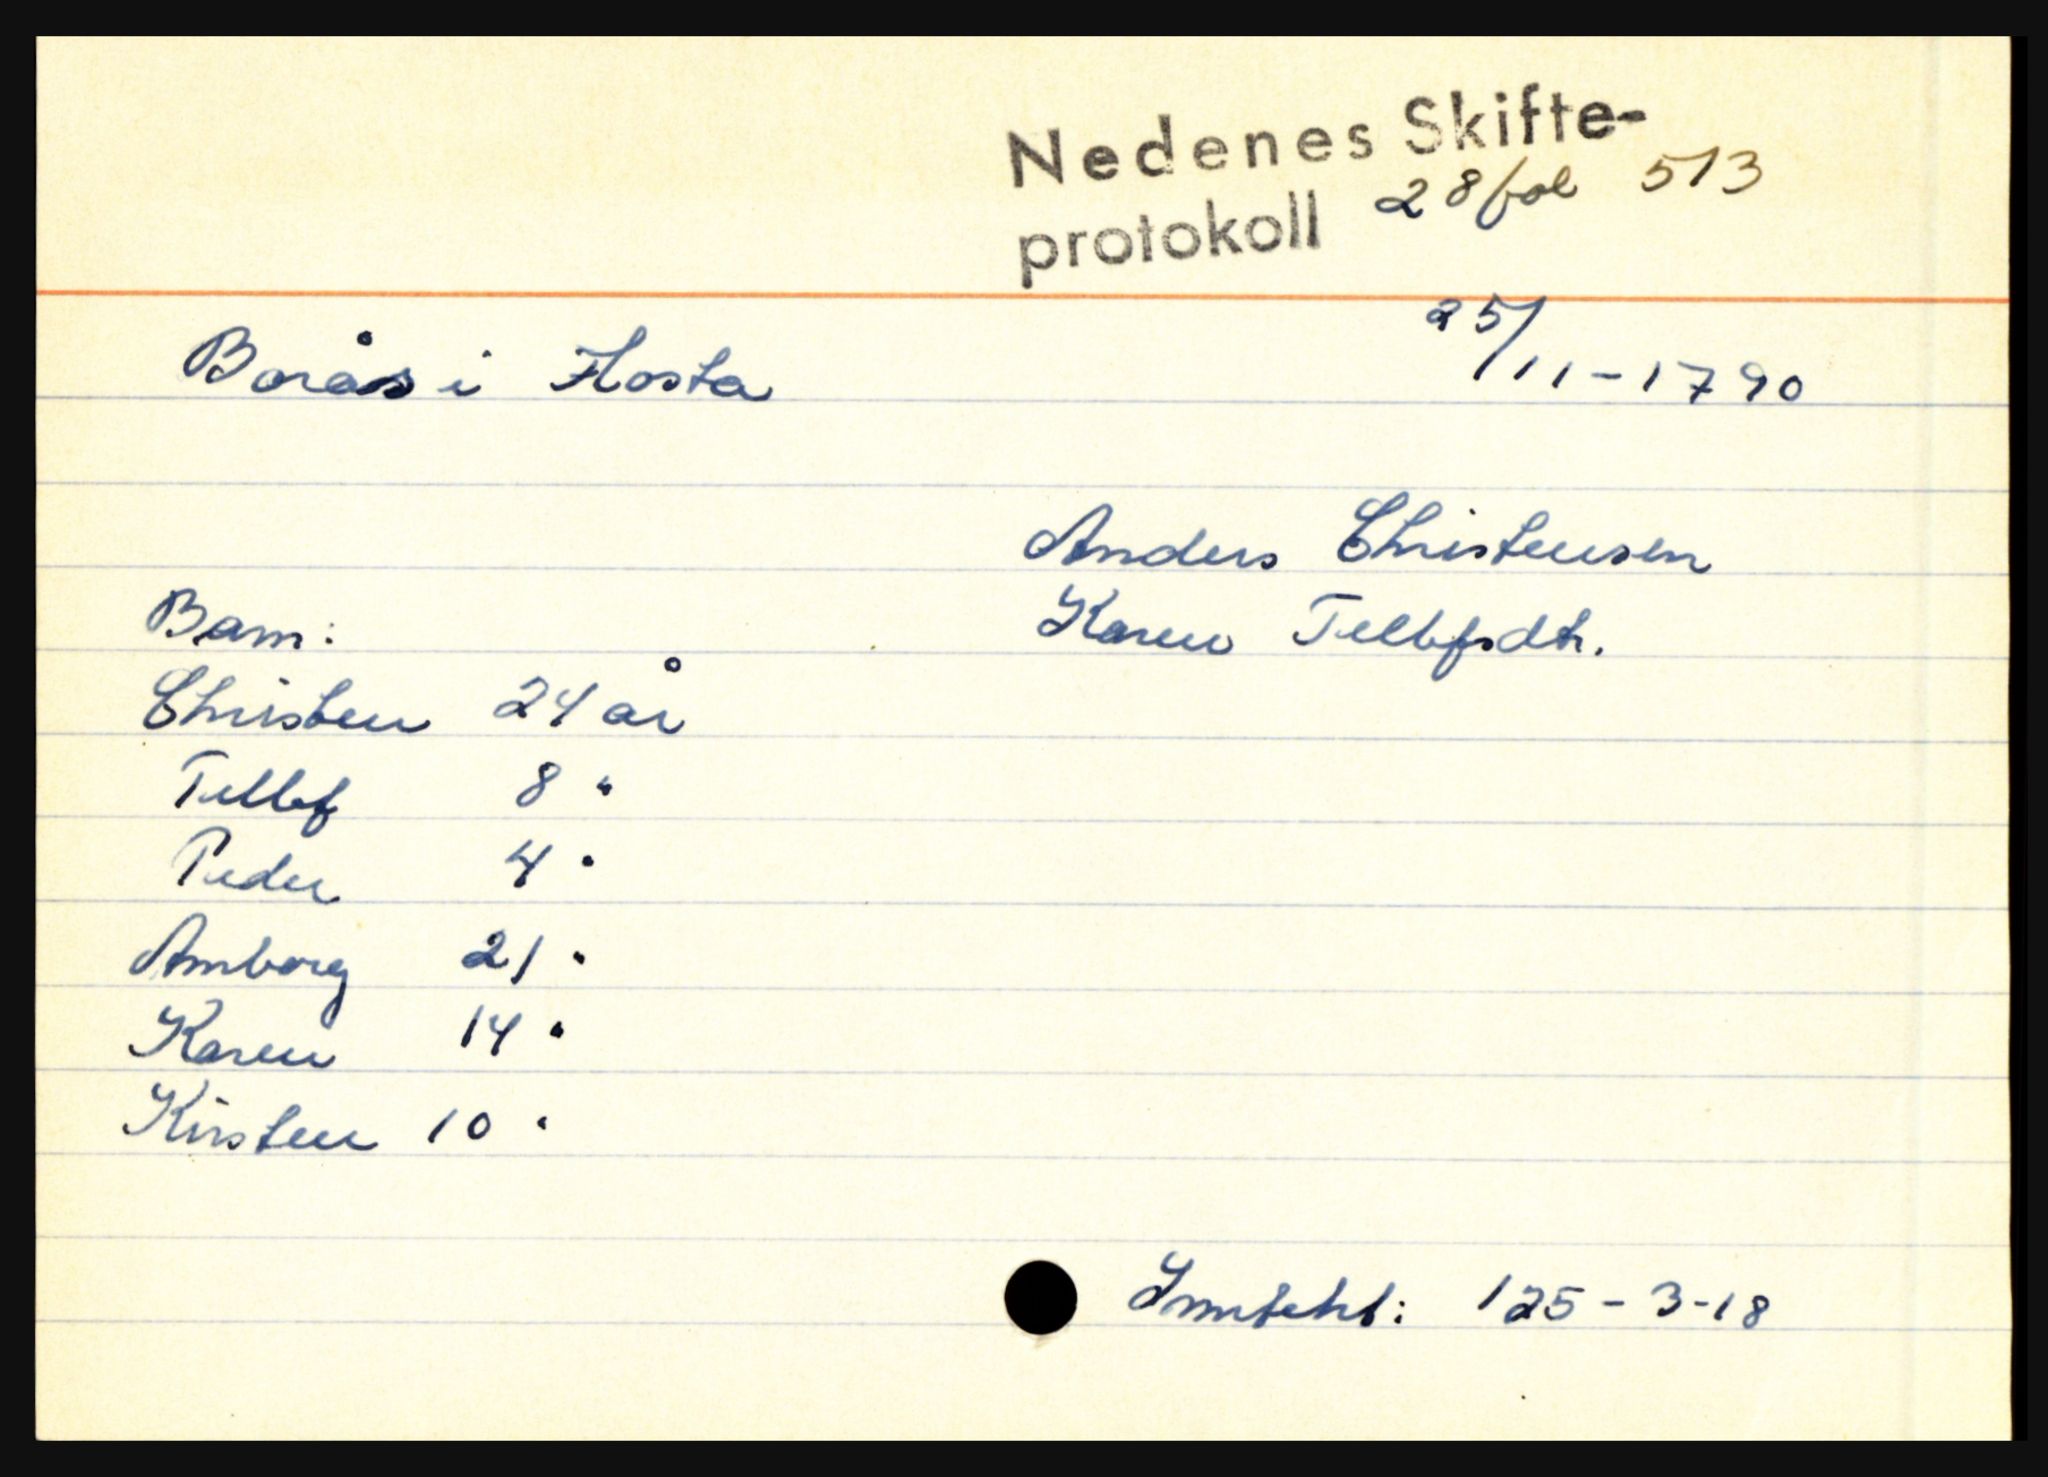 Nedenes Skifte-
protokoll 28 fol 513
Borås i Flosta 25/11-1790
Anders Christensen
Barn: Karen Tellefsdtr.
Christen 24 år
Tellef 8 "
Peder 4 "
Amborg 21 "
Karen 14 "
Kirsten 10 "
Inntekt: 125-3-18